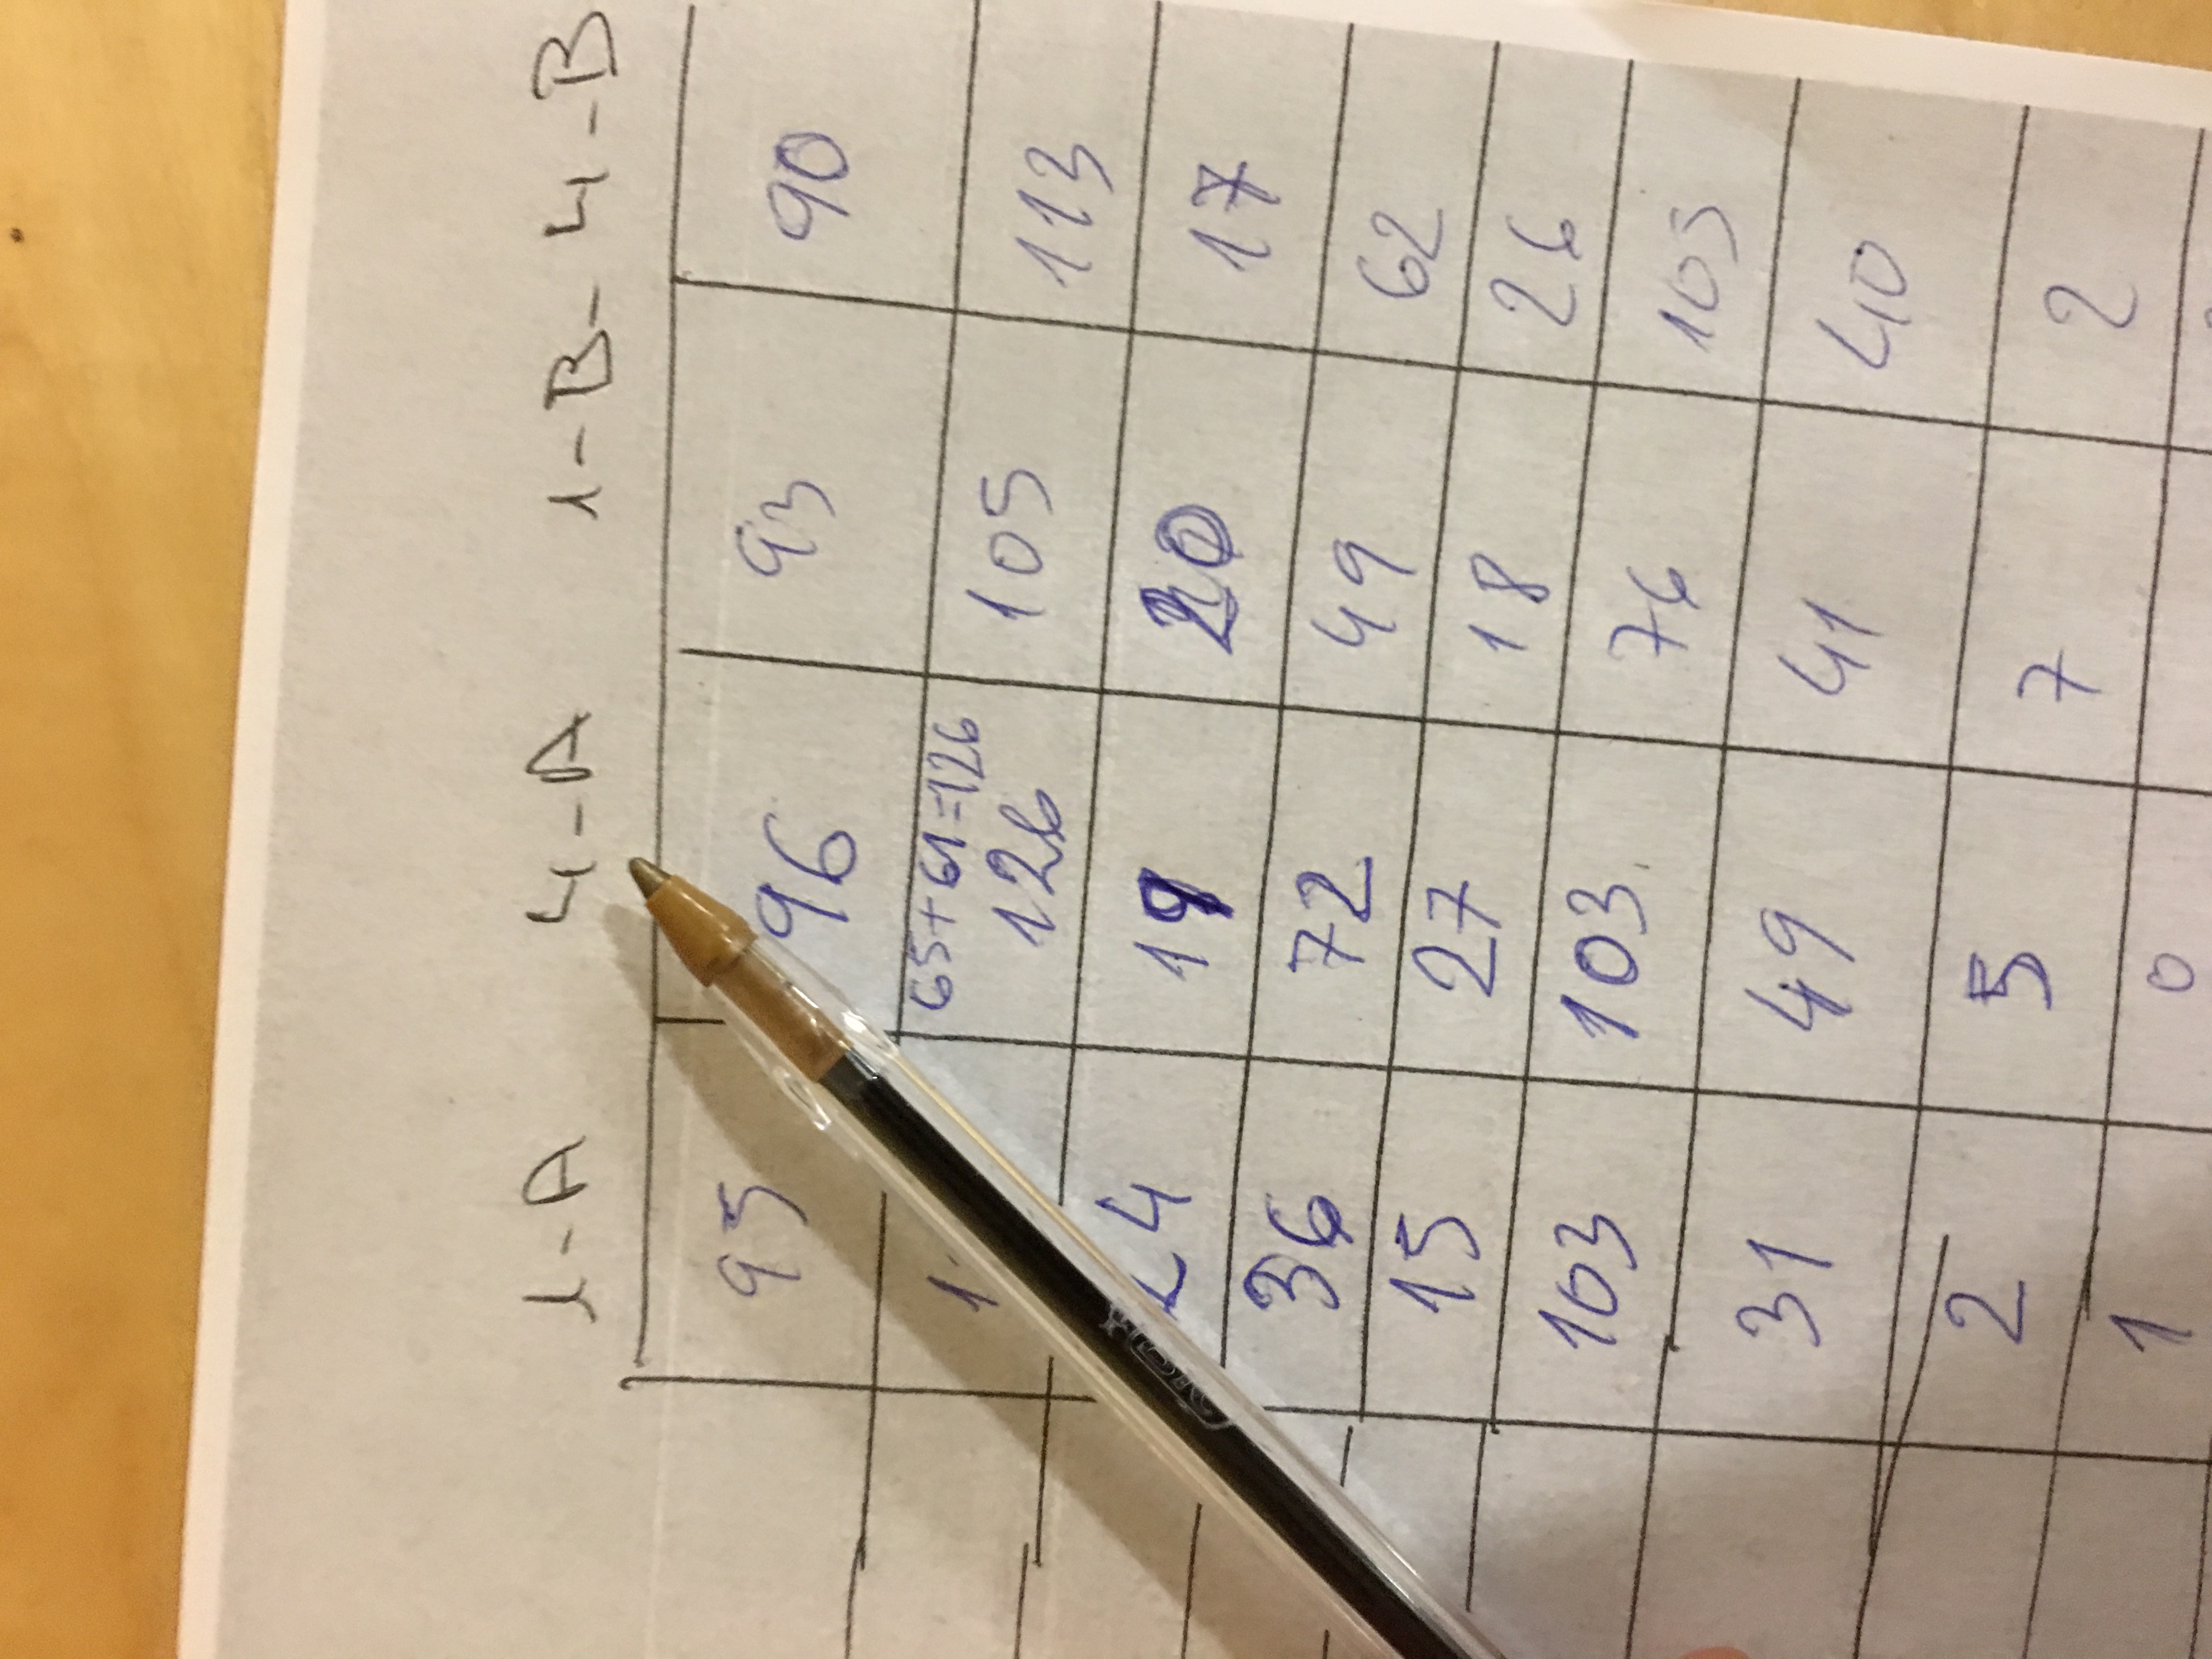 1-A 4-A 1-B- 4-B
95 96 93 90
65+61=126
126 105 113
19 20 17
36 72 49 62
15 27 18 26
103 103 76 103
31 49 41 40
2 5 7 2
1 0